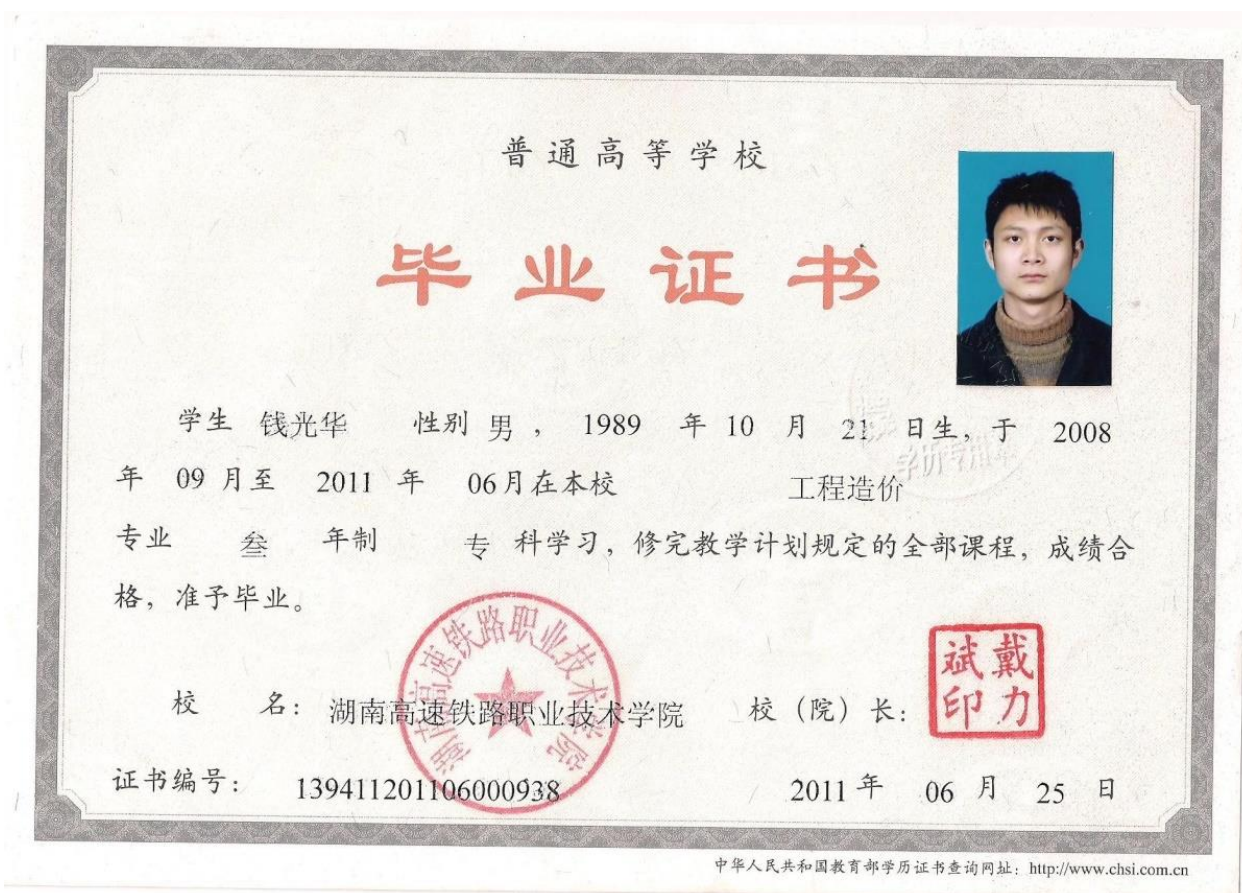 普通高等学校
毕业证书
学生 钱光华 性别 男 , 1989 年 10 月 21 日生, 于 2008
年 09 月至 2011 年 06月在本校 工程造价
专业 叁 年制 专 科学习, 修完教学计划规定的全部课程, 成绩合
格, 准予毕业。
校 名: 湖南高速铁路职业技术学院 校 (院) 长:
湖南高速铁路职业技术学院
戴力斌印
学历专用章
证书编号: 139411201106000938 2011 年 06 月 25 日
中华人民共和国教育部学历证书查询网址: http://www.chsi.com.cn